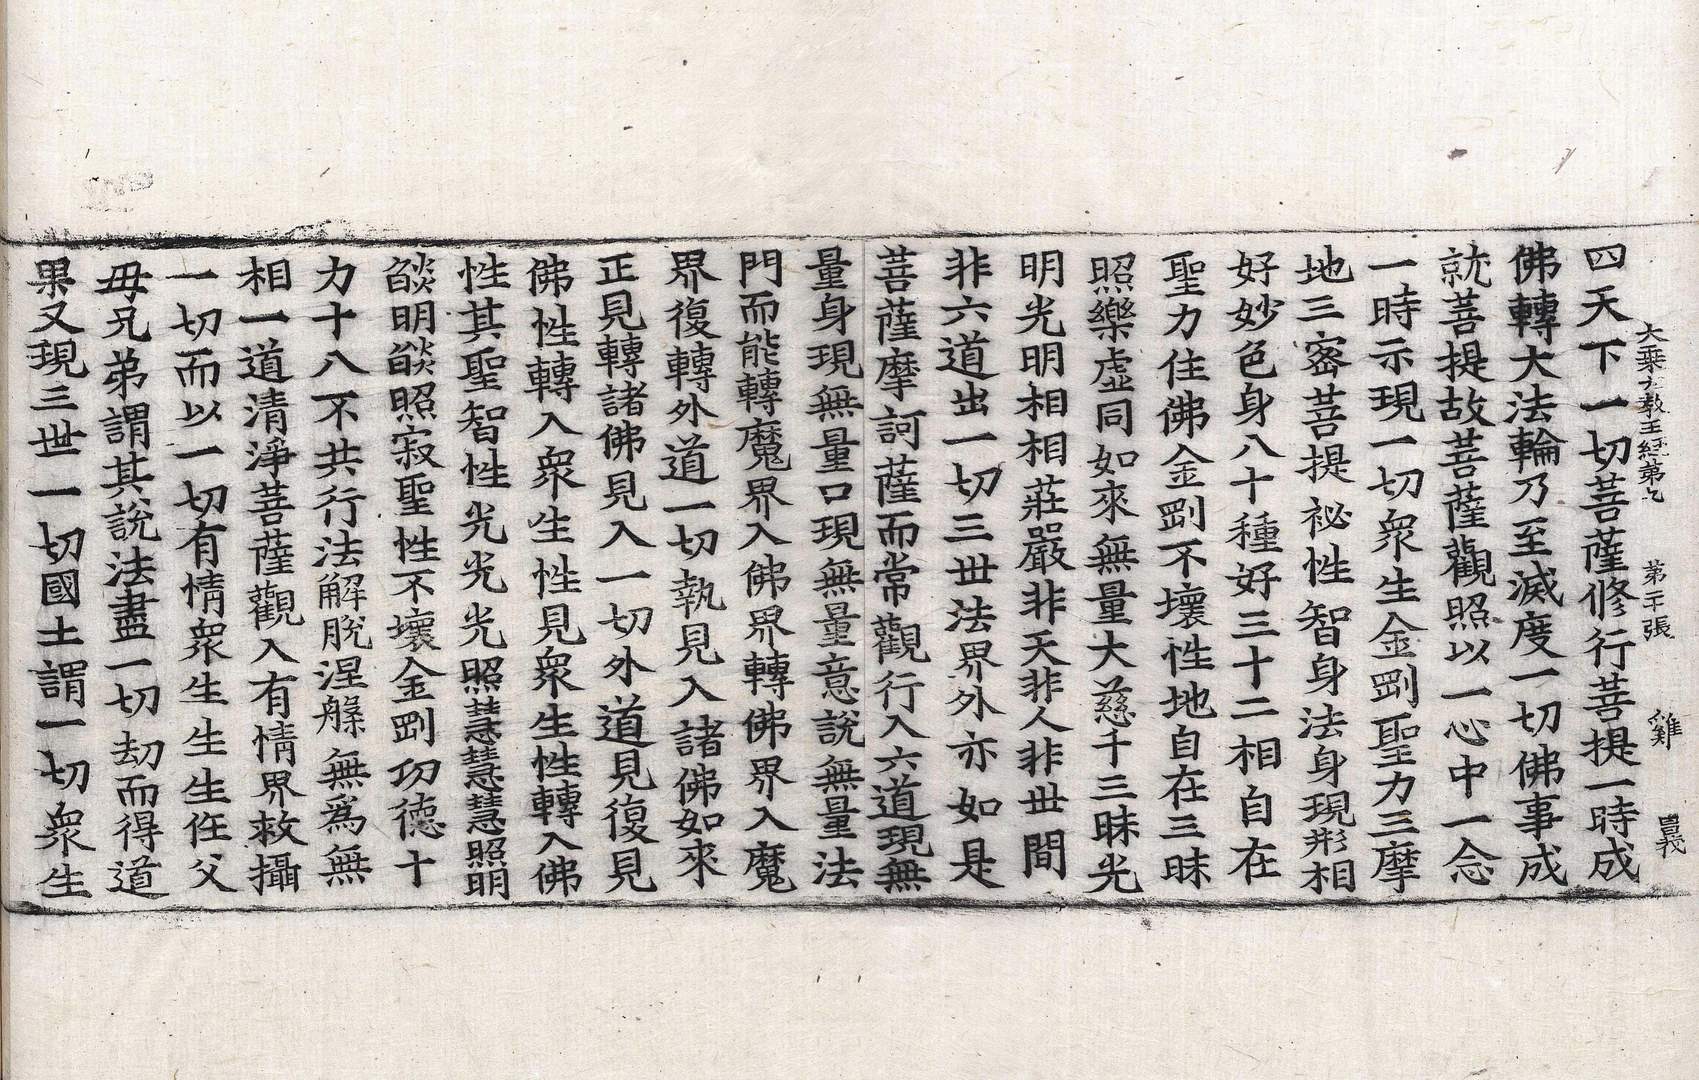 大乘大教王經第七　第干張　雞　昌義
四天下一切菩薩修行菩提一時成
佛轉大法輪乃至滅度一切佛事成
就菩提故菩薩觀照以一心中一念
一時示現一切衆生金剛聖力三摩
地三密菩提祕性智身法身現形相
好妙色身八十種好三十二相自在
聖力住佛金剛不壞性地自在三昧
照樂虛同如來無量大慈千三昧光
明光明相相莊嚴非天非人非世間
非六道出一切三世法界外亦如是
菩薩摩訶薩而常觀行入六道現無
量身現無量口現無量意說無量法
門而能轉魔界入佛界轉佛界入魔
界復轉外道一切執見入諸佛如來
正見轉諸佛見入一切外道見復見
佛性轉入衆生性見衆生性轉入佛
性其聖智性光光光照慧慧慧照明
燄明燄照寂聖性不壞金剛功德十
力十八不共行法解脫涅槃無爲無
相一道清淨菩薩觀入有情界救攝
一切而以一切有情衆生生生作父
母兄弟謂其說法盡一切劫而得道
果又現三世一切國土謂一切衆生